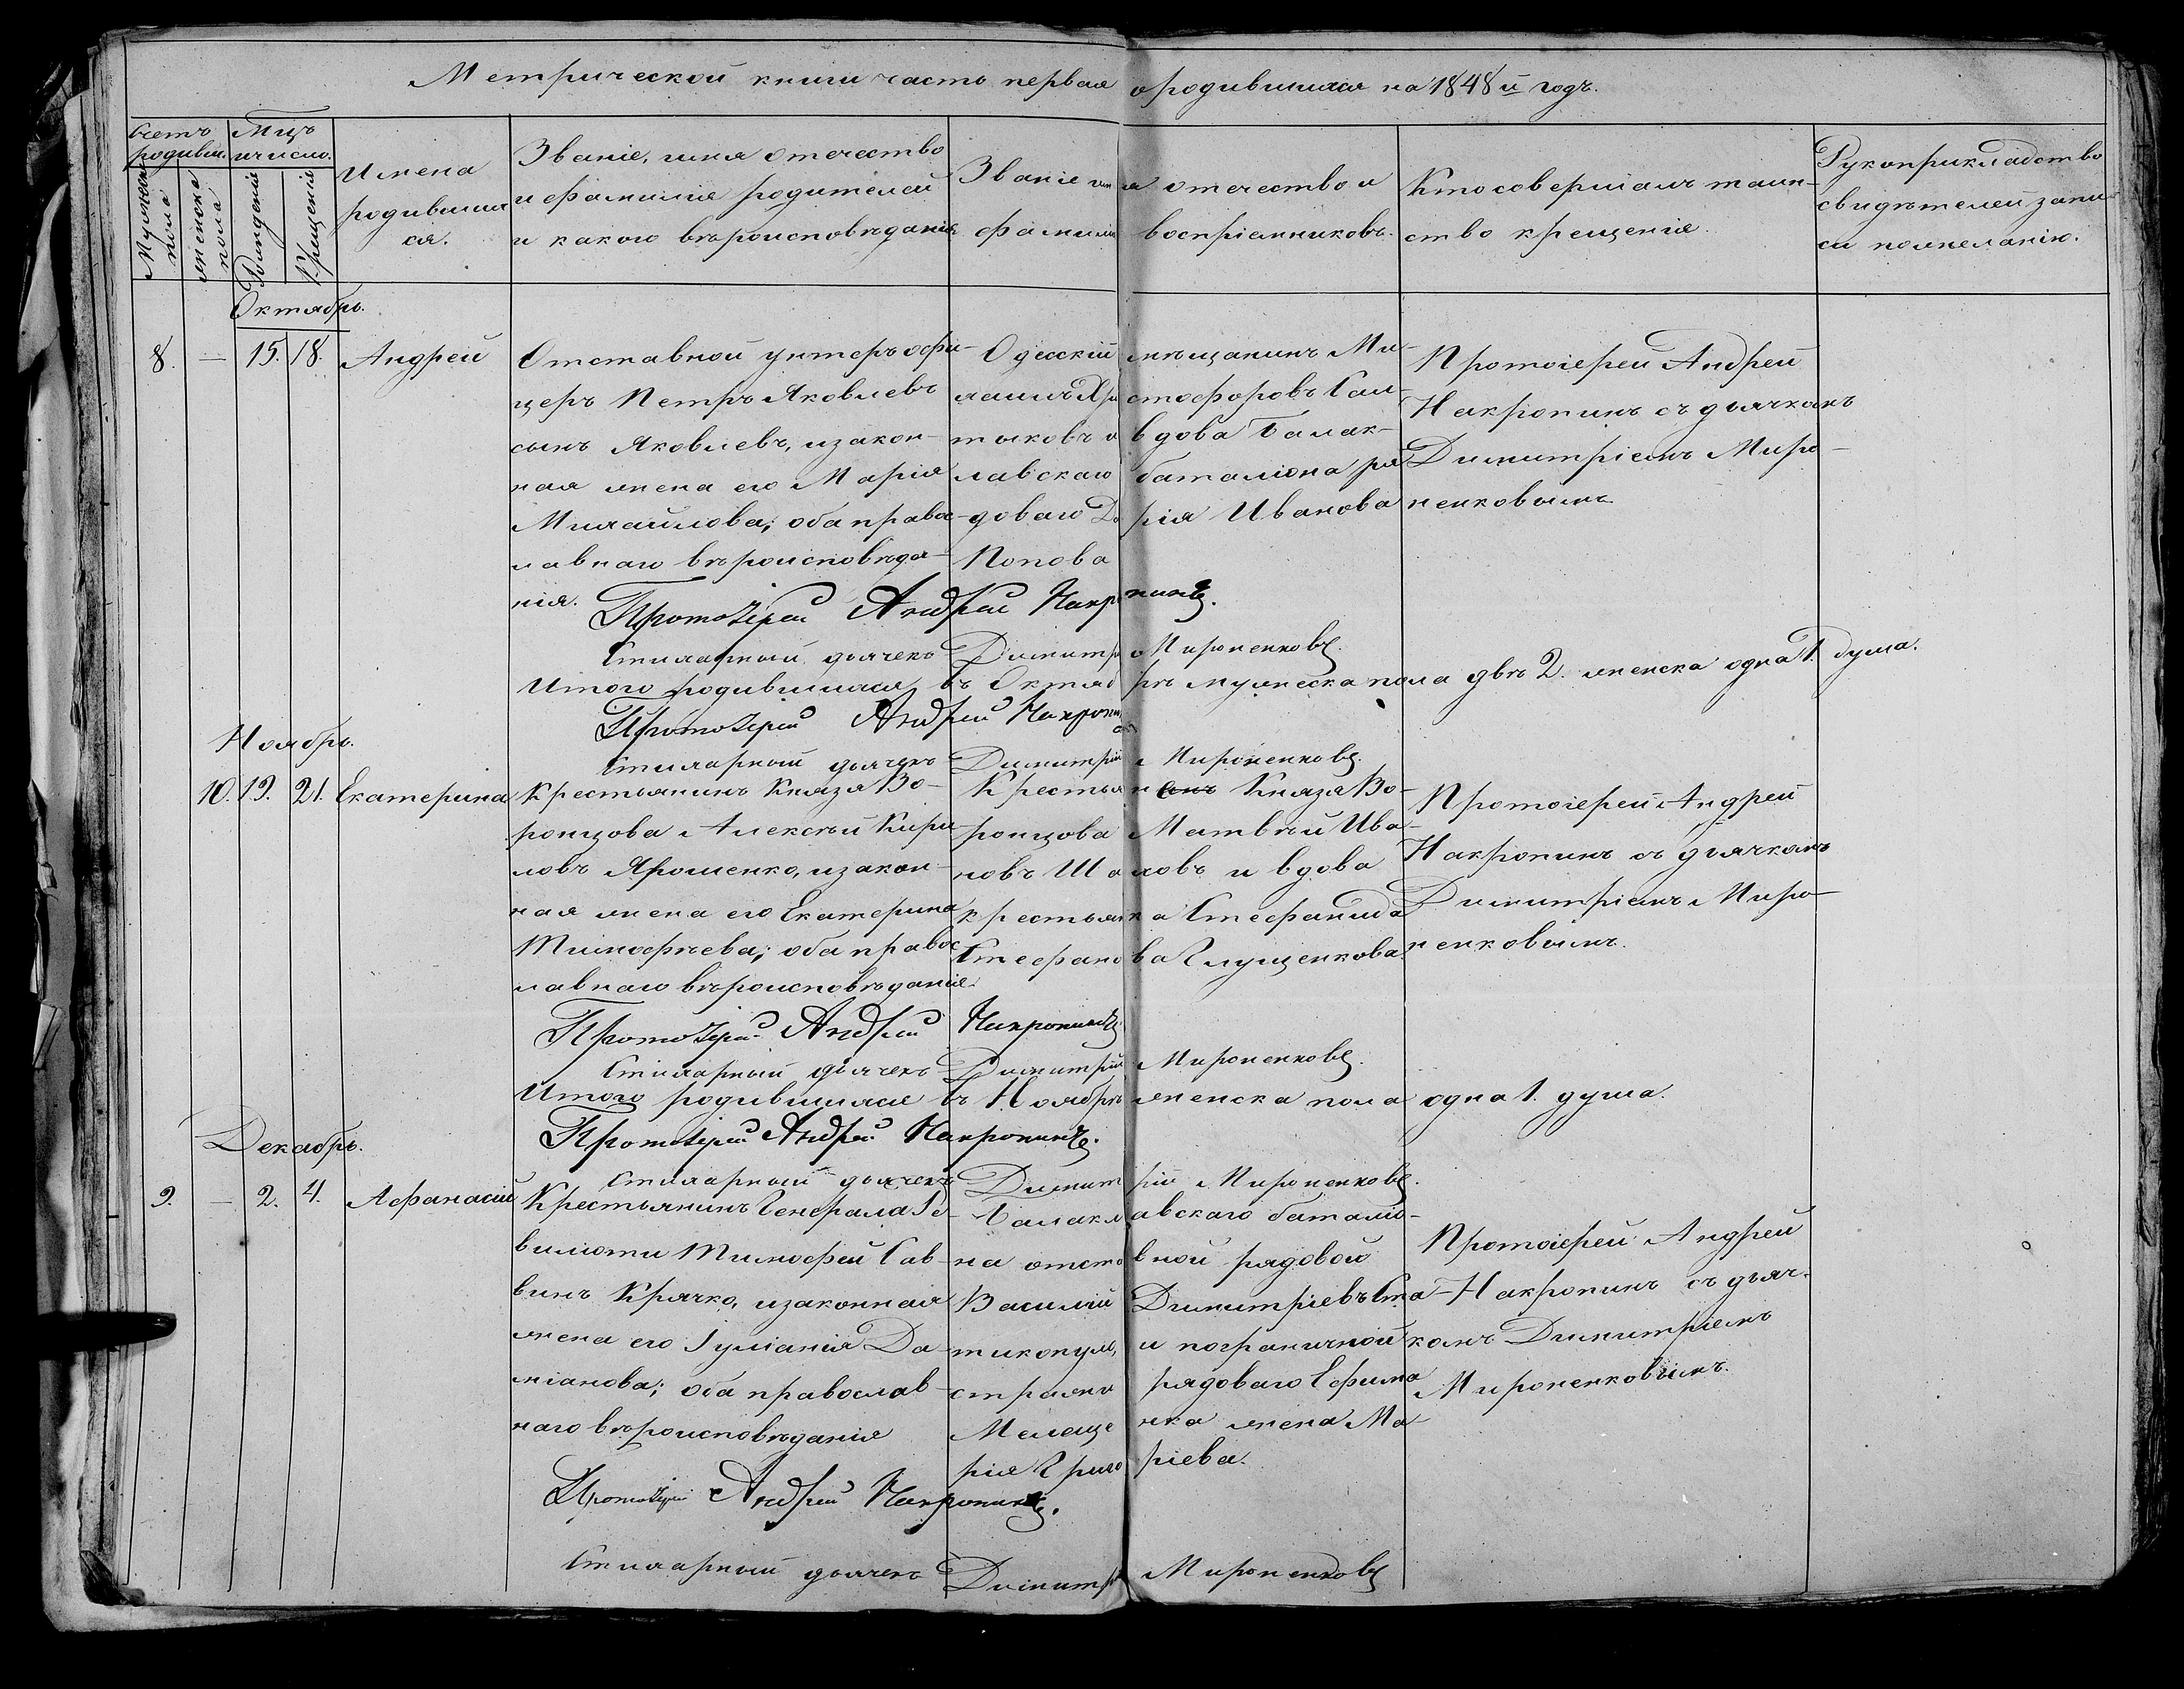 Метрической книги часть первая о родившихся на 1848й годъ.
Счетъ родивш.
Мужеска пола
женска пола
Мцъ и число.
Рожденія
Крещенія
Имена
родивших
ся.
Званіе, имя отечество
и фамилія родителей
и какого вѣроисповѣданія
Званіе имя отечество и
фамилія воспріемниковъ.
Кто совершалъ таин-
ство крещенія.
Рукоприкладство
свидѣтелей запи-
си по желанію.
Октябрь.
8. — 15. 18. Андрей
Отставной унтеръ офи-
церъ Петръ Яковлевъ
сынъ Яковлевъ, и закон-
ная жена его Марія
Михайлова; оба правос-
лавнаго вѣроисповѣда-
нія.
Одесскій мѣщанинъ Ми-
хаилъ Христофоровъ Сал-
тыковъ и вдова Балак-
лавскаго баталіона ря-
доваго Дарія Иванова
Попова
Протоіерей Андрей
Накропинъ съ дьячкомъ
Димитріемъ Миро-
ненковымъ
Протоіерей Андрей Накропинъ.
Стихарный дьячекъ Димитрій Мироненковъ.
Итого родившихся въ Октябрѣ мужеска пола двѣ 2. женска одна 1. душа.
Протоіерей Андрей Накропинъ
Стихарный дьячекъ Димитрій Мироненковъ.
Ноябрь.
10. 19. 21. Екатерина
Крестьянинъ Князя Во-
ронцова Алексѣй Кири-
ловъ Ярошенко, и закон-
ная жена его Екатерина
Тимофѣева; оба правос-
лавнаго вѣроисповѣданія.
Крестьянинъ Князя Во-
ронцова Матвѣй Ива-
новъ Шаховъ и вдова
крестьянка Стефанида
Стефанова Глущенкова.
Протоіерей Андрей
Накропинъ съ дьячкомъ
Димитріемъ Миро-
ненковымъ.
Протоіерей Андрей Накропинъ.
Стихарный дьячекъ Димитрій Мироненковъ.
Итого родившихся въ Ноябрѣ женска пола одна 1. душа.
Протоіерей Андрей Накропинъ.
Стихарный дьячекъ Димитрій Мироненковъ.
Декабрь.
9. — 2. 4. Афанасій
Крестьянинъ Генерала Ре-
виліоти Тимофей Сав-
винъ Крячко, и законная
жена его Іуліанія Да-
міанова; оба православ-
наго вѣроисповѣданія
Балаклавскаго баталіо-
на отставной рядовой
Василій Димитріевъ Ста-
микопуло, и пограничной
стражи рядоваго Ефима
жена Ма-
рія Григоріева.
Протоіерей Андрей
Накропинъ съ дьяч-
комъ Димитріемъ
Мироненковымъ.
Протоіерей Андрей Накропинъ.
Стихарный дьячекъ Димитрій Мироненковъ